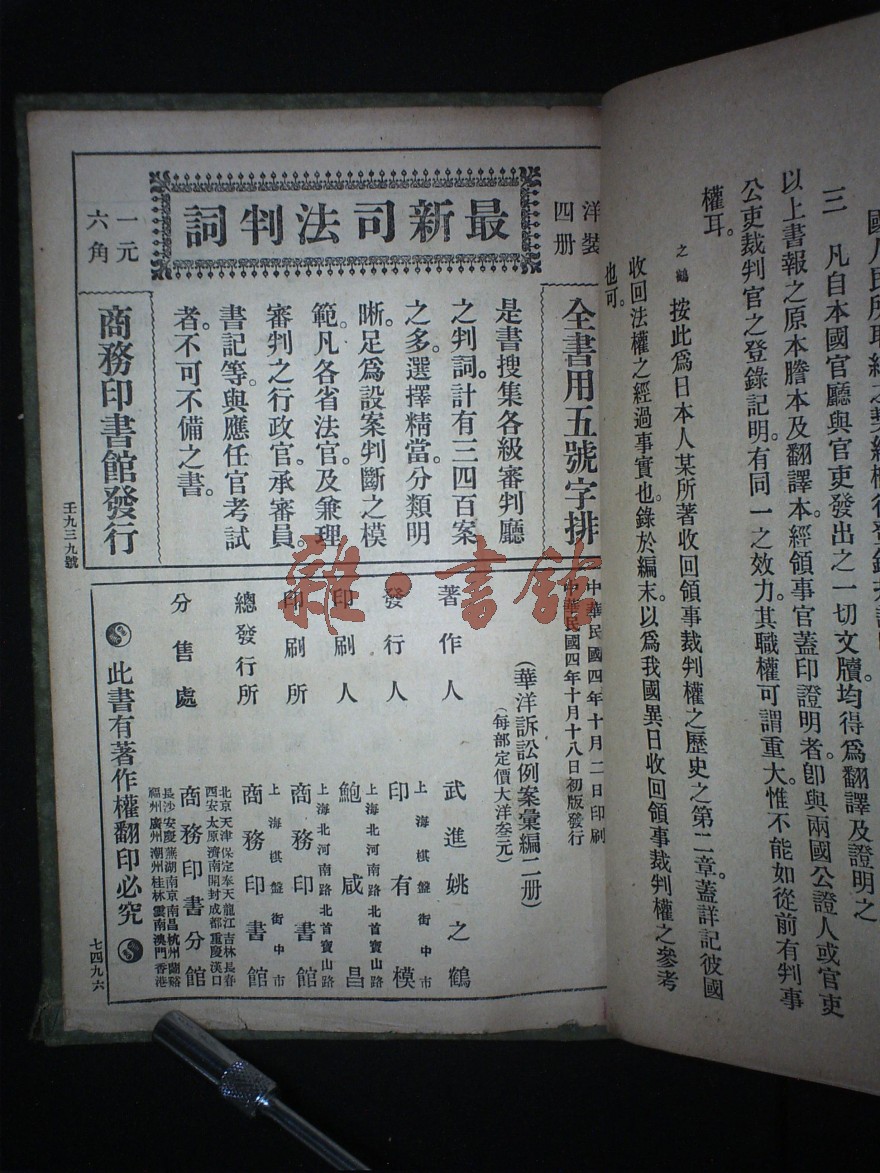 三　凡自本國官廳與官吏發出之一切文牘均得爲翻譯及證明之
以上書報之原本謄本及翻譯本經領事官蓋印證明者卽與兩國公證人或官吏
公吏裁判官之登錄記明。有同一之效力。其職權可謂重大。惟不能如從前有判事
權耳。
之鶴　按此爲日本人某所著收回領事裁判權之歷史之第二章。蓋詳記彼國
收回法權之經過事實也。錄於編末。以爲我國異日收回領事裁判權之參考
也可。
洋裝
四册
最新司法判詞
一元
六角
全書用五號字排
是書搜集各級審判廳
之判詞。計有三四百案
之多。選擇精當。分類明
晰。足爲設案判斷之模
範。凡各省法官。及兼理
審判之行政官。承審員。
書記等。與應任官考試
者。不可不備之書。
商務印書館發行
壬九三九號
中華民國四年十月二日印刷
中華民國四年十月十八日初版發行
(華洋訴訟例案彙編二册)
(每部定價大洋叁元)
著作人　武進姚之鶴
發行人　印有模
上海棋盤街中市
印刷人　鮑咸昌
上海北河南路北首寶山路
印刷所　商務印書館
上海北河南路北首寶山路
總發行所　商務印書館
上海棋盤街中市
分售處　商務印書分館
北京天津保定奉天龍江吉林長春
西安太原濟南開封成都重慶漢口
長沙安慶蕪湖南京南昌杭州蘭谿
福州廣州潮州桂林雲南澳門香港
此書有著作權翻印必究
七四九六
雜·書館